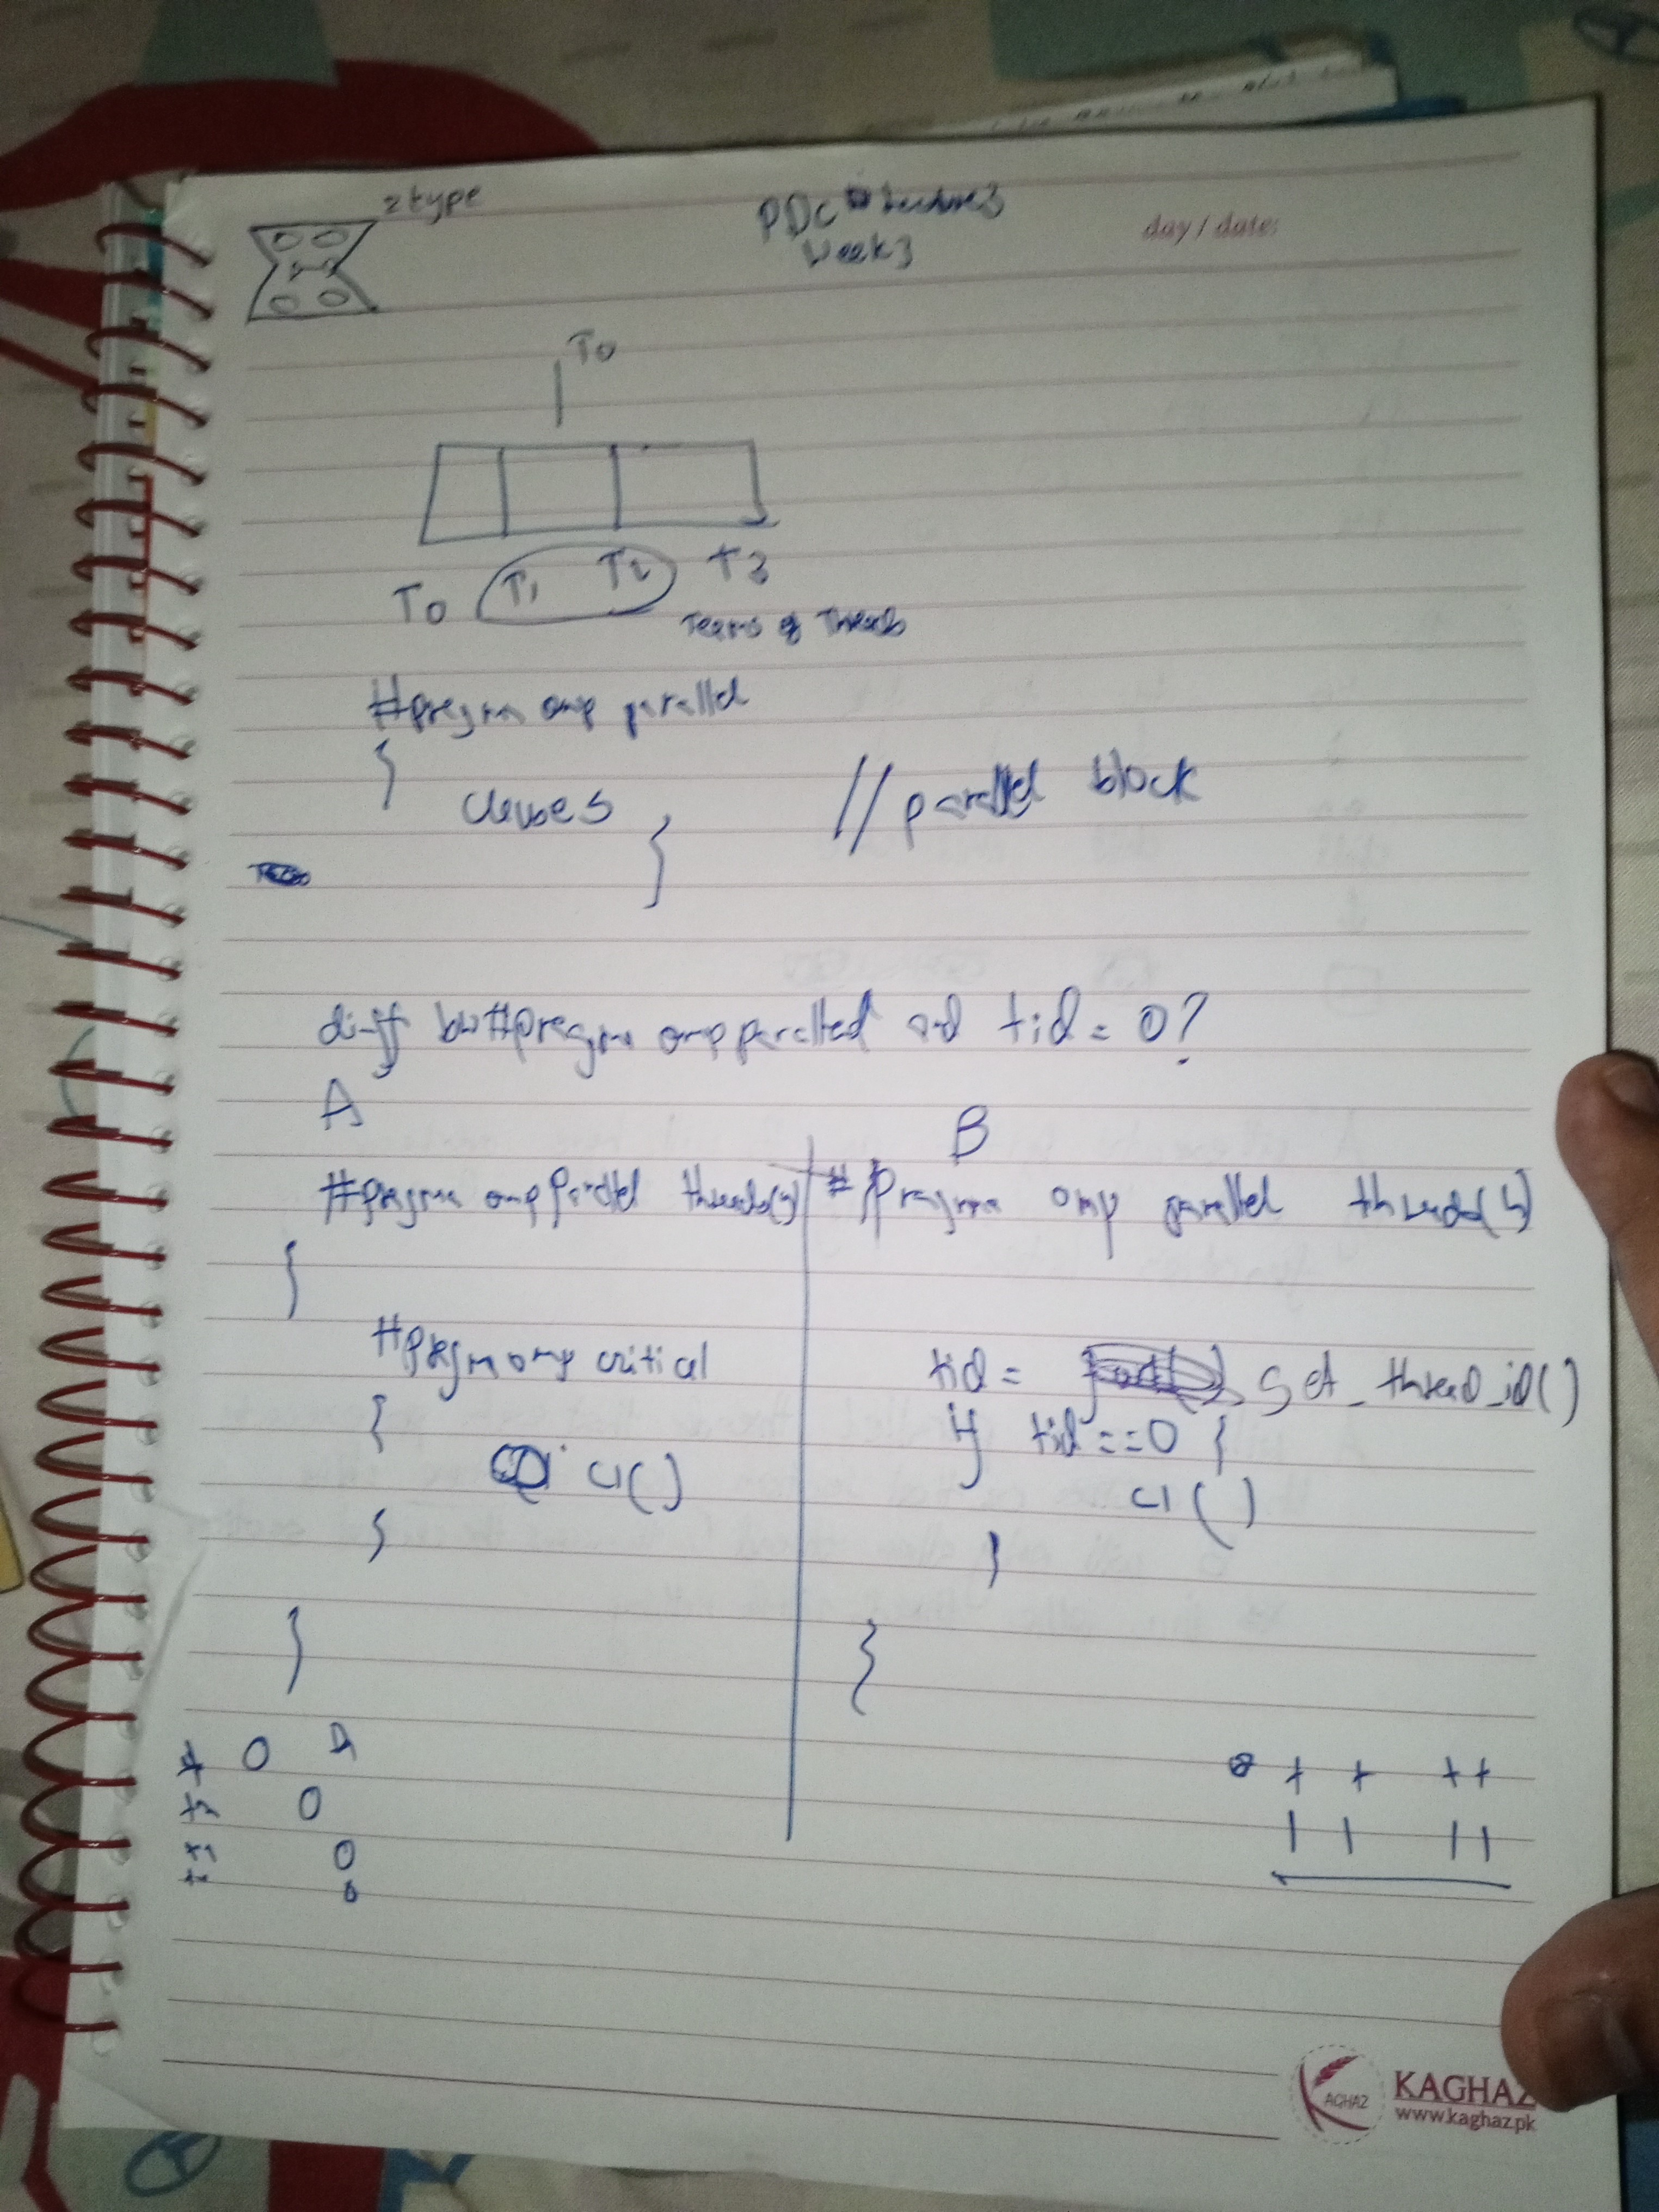 2 type
PDC Lecture 3
Week 3
day / date:
T0
T0 T1 T2 T3
Teams of Threads
#pragma omp parallel
{
clauses // parallel block
}
diff bw #pragma omp parallel and tid = 0?
A B
#pragma omp parallel threads( ) #pragma omp parallel threads(4)
{
#pragma omp critical tid = get_thread_id()
{ if tid == 0 {
c1() c1()
} }
} }
0 A
0
0
0
+ + + +
| | | |
KAGHAZ
KAGHAZ
www.kaghaz.pk